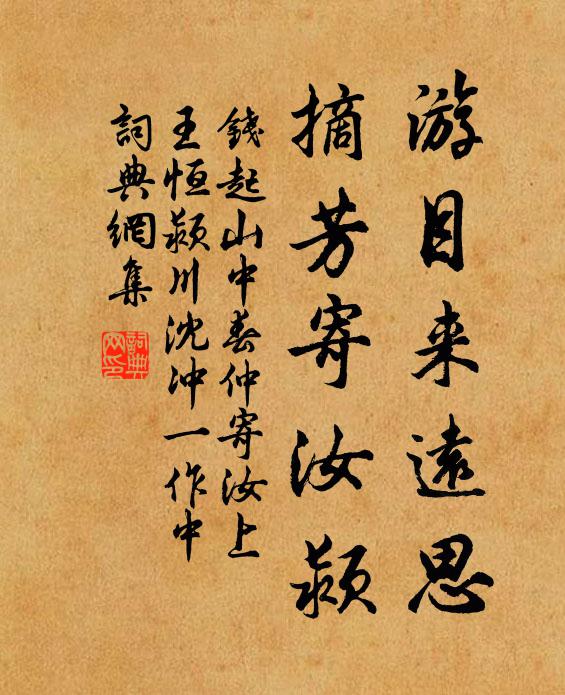 游目来遠思
摘芳寄汝颍
錢起山中春仲寄汝上
王恒颍川沈冲一作中
詞典網集
詞典网印